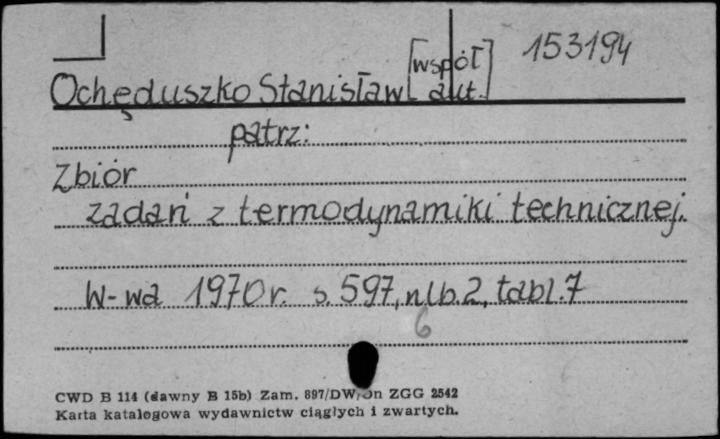 153194
Ochęduszko Stanisław [współaut.]
patrz:
Zbiór
zadań z termodynamiki technicznej.
W-wa 1970 r. s. 597, nlb. 2, tabl. 7
6
CWD B 114 (dawny B 15b) Zam. 897/DW/Jn ZGG 2542
Karta katalogowa wydawnictw ciągłych i zwartych.